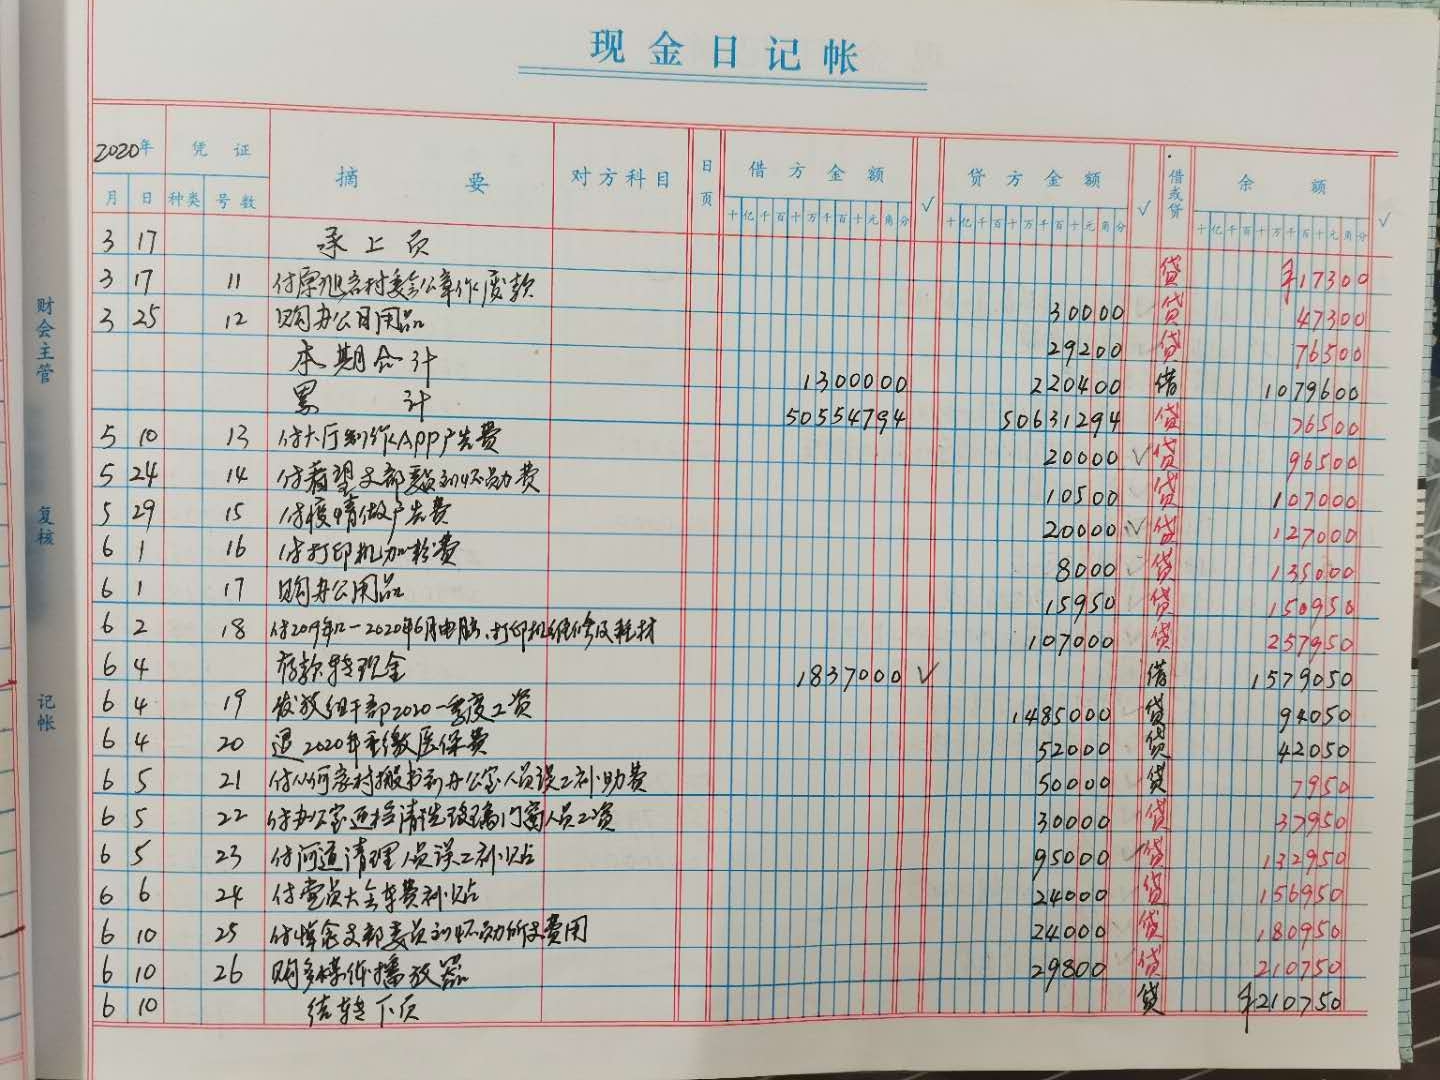 现金日记帐
2020年 凭证 摘要 对方科目 日页 借方金额 √ 贷方金额 √ 借或贷 余额 √
月 日 种类 号数 十亿千百十万千百十元角分 十亿千百十万千百十元角分 十亿千百十万千百十元角分
3 17 承上页 贷 ¥17300
3 17 11 付原旭名村委会公章作废款 30000 贷 47300
3 25 12 购办公用品 29200 贷 76500
本期合计 1300000 220400 借 1079600
累计 50554794 50631294 贷 76500
5 10 13 付大厅制作APP广告费 20000 √ 贷 96500
5 24 14 付看望支部委员 费 10500 贷 107000
5 29 15 付疫情做广告费 20000 √ 贷 127000
6 1 16 付打印机加粉费 8000 贷 135000
6 1 17 购办公用品 15950 贷 150950
6 2 18 付2019年12-2020年6月电脑、打印机维修及耗材 107000 贷 257950
6 4 存款转现金 1837000 √ 借 1579050
6 4 19 发放组干部2020一季度工资 1485000 贷 94050
6 4 20 退2020年重缴医保费 52000 贷 42050
6 5 21 付从何家村搬书到办公室人员误工补助费 50000 贷 7950
6 5 22 付办公室 清洗玻璃门窗人员工资 30000 贷 37950
6 5 23 付河道清理人员误工补贴 95000 √ 贷 132950
6 6 24 付党员大会车费补贴 24000 贷 156950
6 10 25 付悼念支部委员 所支费用 24000 贷 180950
6 10 26 购多媒体播放器 29800 贷 210750
6 10 结转下页 贷 ¥210750
财会主管
复核
记帐